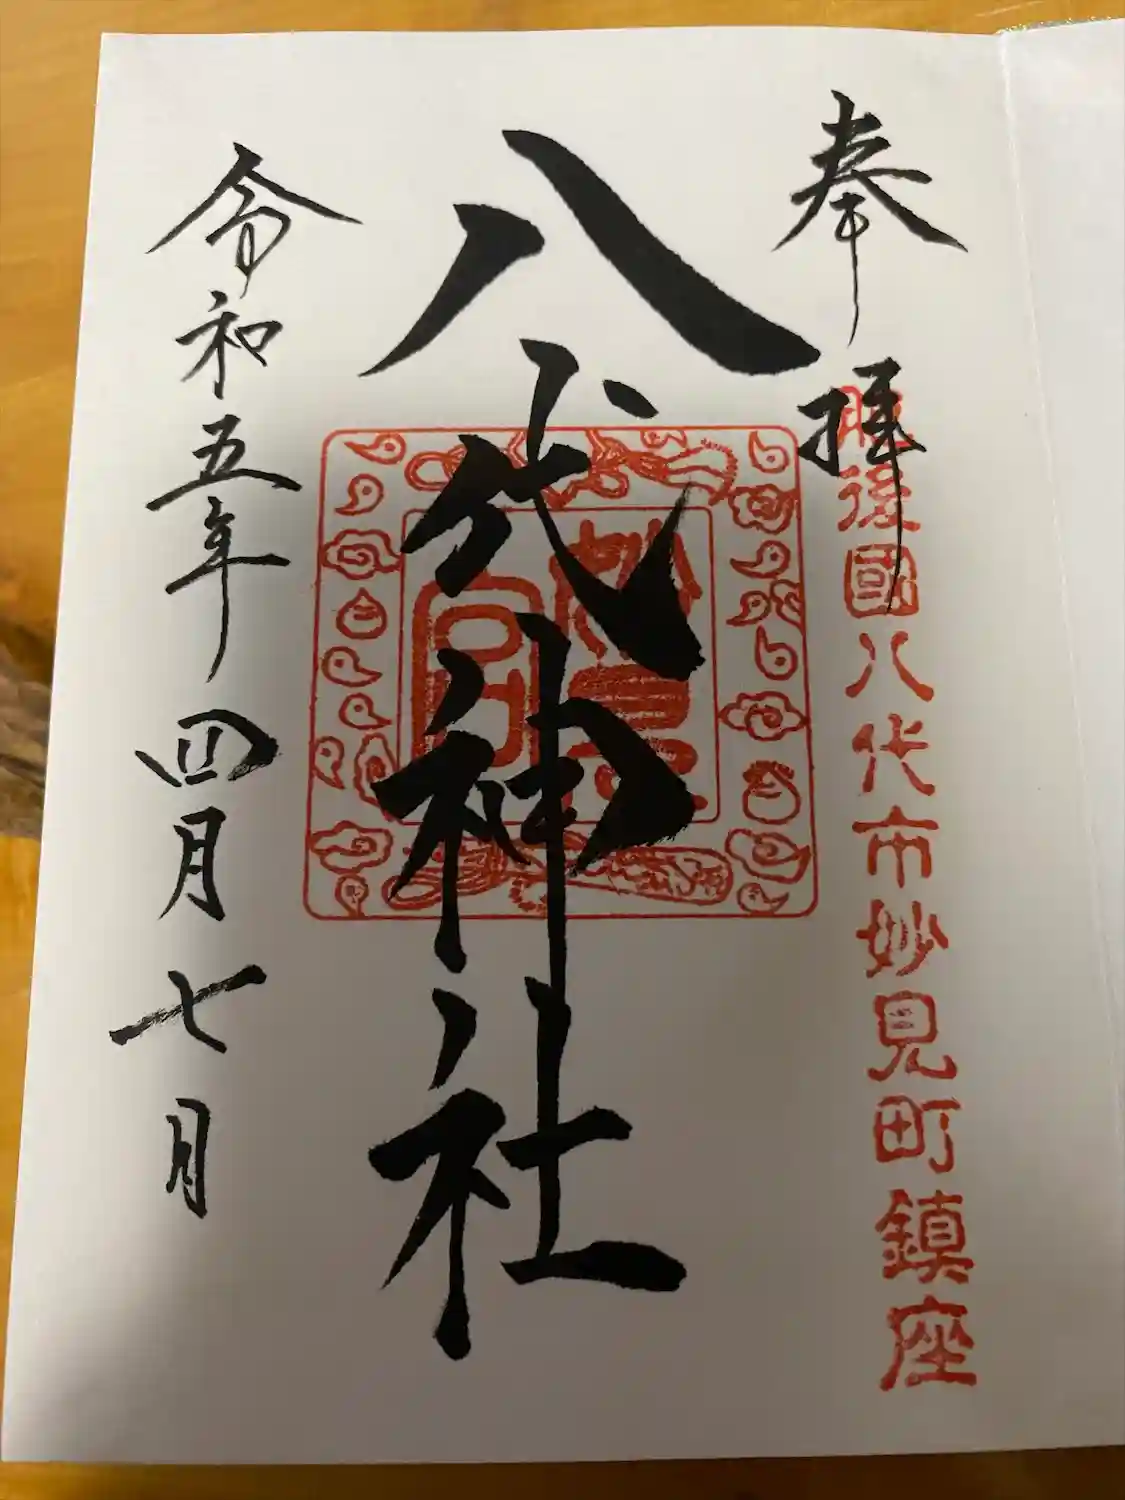 奉拝
肥後國八代市妙見町鎮座
八代神社
妙見宮司印
令和五年四月七日